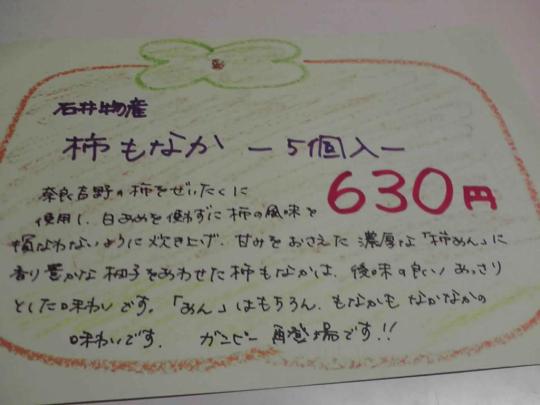 石井物産
柿もなか ー5個入ー
630円
奈良吉野の柿をぜいたくに
使用し、白あんを使わずに柿の風味を
損なわないように炊き上げ、甘みをおさえた濃厚な「柿あん」に
香り豊かな柚子をあわせた柿もなかは、後味の良いあっさり
とした味わいです。「あん」はもちろん、もなかもなかなかの
味わいです。 ガンピー再登場です!!